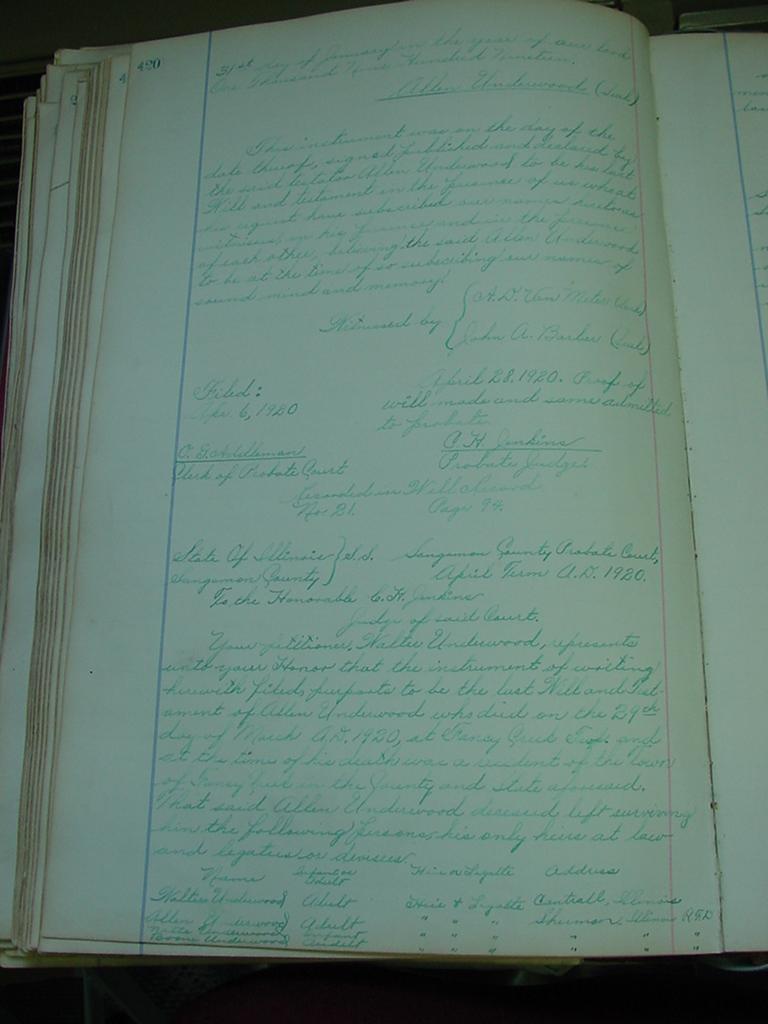 420
31st day of January in the year of our Lord
One Thousand Nine Hundred Nineteen.
Allen Underwood (Seal)
This instrument was on the day of the
date thereof, signed published and declared by
the said testator Allen Underwood, to be his last
Will and testament in the presence of us who at
his request have subscribed our names hereto as
witnesses, in his presence and in the presence
of each other, believing the said Allen Underwood
to be at the time of so subscribing our names of
sound mind and memory.
Witnessed by { A. D. Van Meter (Seal)
John A. Barber (Seal)
Filed:
Apr. 6, 1920
April 28, 1920. Proof of
will made and same admitted
to probate.
C. H. Jenkins
Probate Judge.
Clerk of Probate Court
Recorded in Will Record
No. 21. Page 94.
State Of Illinois } S.S. Sangamon County Probate Court,
Sangamon County } April Term A.D. 1920.
To the Honorable C. H. Jenkins
Judge of said Court.
Your petitioner, Walter Underwood, represents
unto your Honor that the instrument of writing
herewith filed, purports to be the last Will and Test-
ament of Allen Underwood who died on the 29th
day of March A.D. 1920, at Fancy Creek Twp. and
at the time of his death was a resident of the town
of Fancy Creek in the County and State aforesaid.
That said Allen Underwood deceased, left surviving
him the following persons, his only heirs at law
and legatees or devisees
Name Infant or Adult Heir or Legatte Address
Walter Underwood} Adult Heir & Legatte Cantrall, Illinois
Allen Underwood} Adult " " " Sherman, Illinois R.F.D
Underwood} Infant " " " " "
Underwood} Adult " " " " "